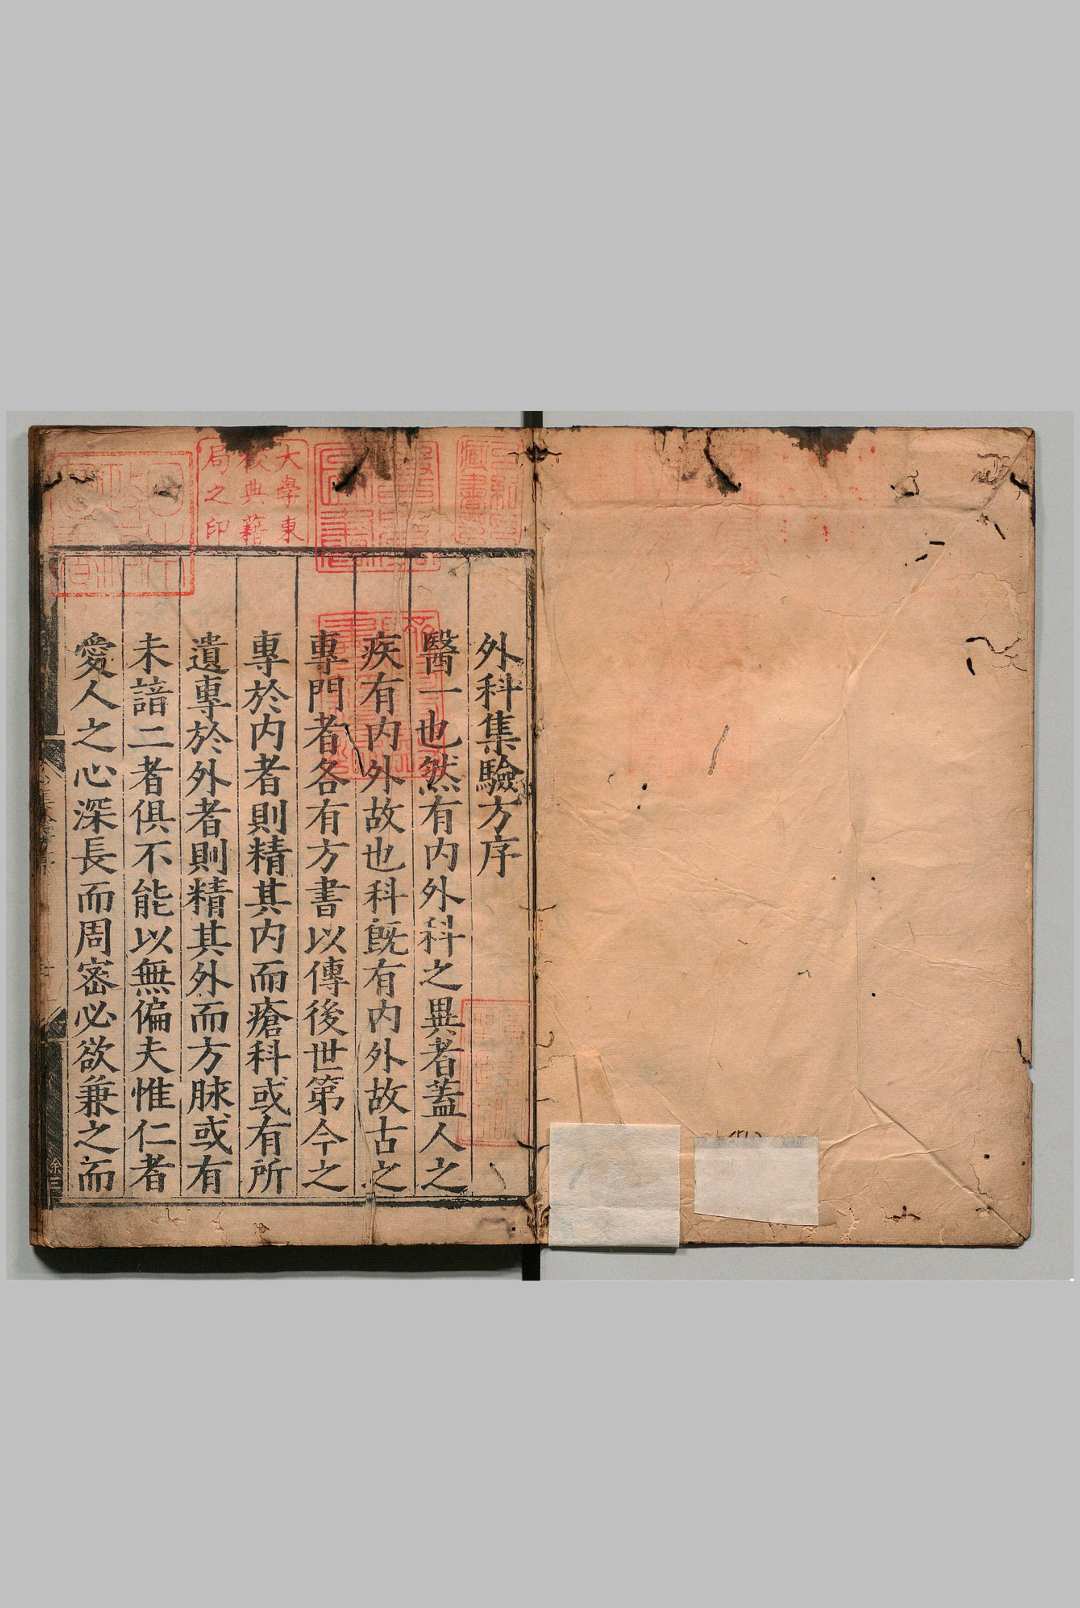 外科集驗方序
醫一也然有內外科之異者蓋人之
疾有內外故也科旣有內外故古之
專門者各有方書以傳後世第今之
專於內者則精其內而瘡科或有所
遺專於外者則精其外而方脉或有
未諳二者俱不能以無偏夫惟仁者
愛人之心深長而周密必欲兼之而
大學東
校典籍
局之印